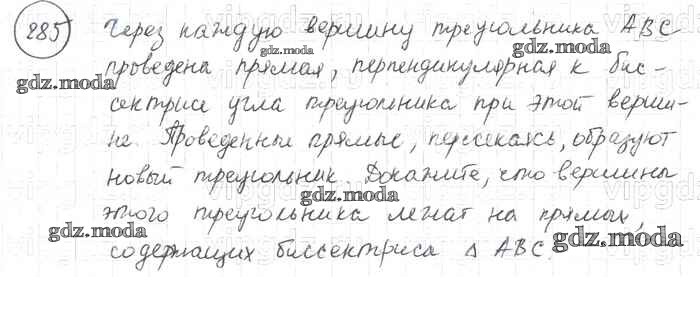 885 Через каждую вершину треугольника ABC
проведена прямая, перпендикулярная к бис-
сектрисе угла треугольника при этой верши-
не. Проведенные прямые, пересекаясь, образуют
новый треугольник. Докажите, что вершины
этого треугольника лежат на прямых,
содержащих биссектриса Δ ABC.
gdz.moda
gdz.moda
gdz.moda
gdz.moda
gdz.moda
gdz.moda
gdz.moda
gdz.moda